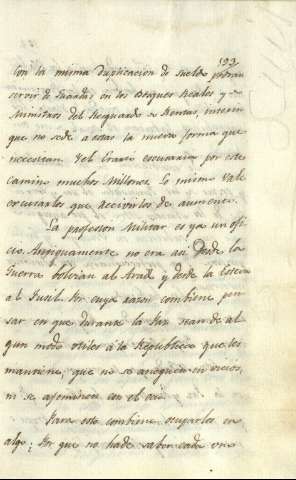 193
Con la misma duplicacion de sueldo podran
servir de Guardas en los Bosques Reales y de
Ministros del Resguardo de Rentas, interin
que no se dé a estas la nueva forma que
necesitan. Y el Erario escusaria por este
camino muchos Millones. Lo mismo vale
escusarlos que darle los de aumento.
La profesion Militar es ya un ofi
cio. Antiguamente no era asi. Desde la
Guerra bolvian al Arado, y desde la Esteva
al Fusil. Por cuya razon combiene pen
sar en que durante la Paz sean de al
gun modo utiles á la Republica que los
mantiene, que no se aneguen en vicios,
ni se afeminen con el ocio.
Para esto combiene ocuparlos en
algo; Por que no hade saber cada uno